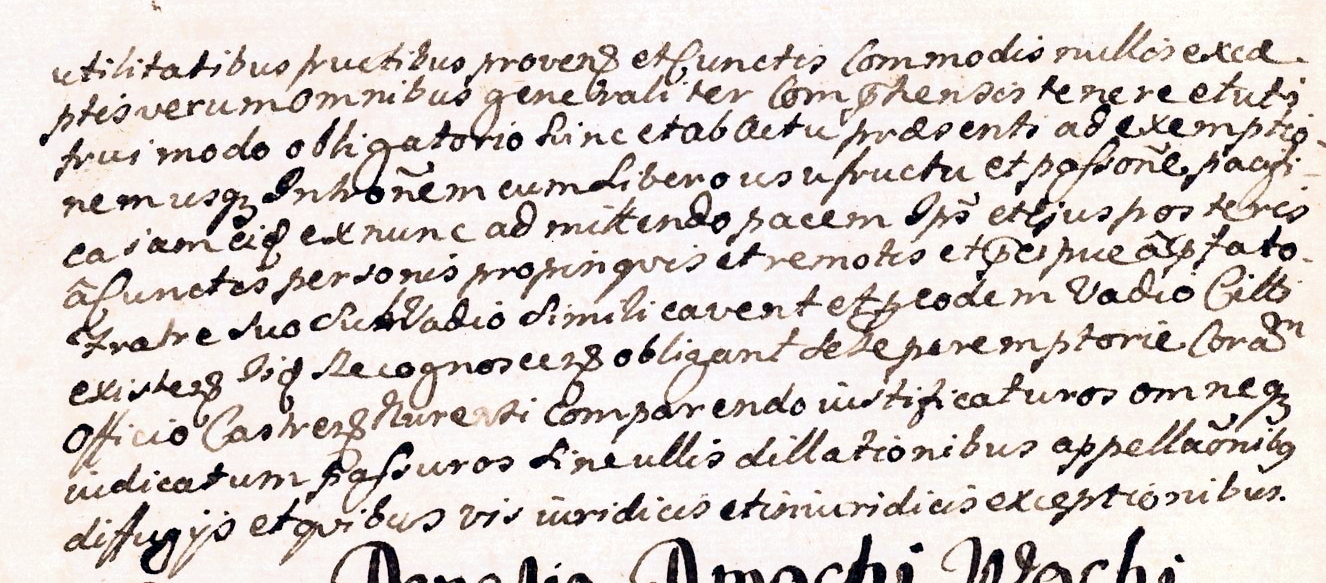 utilitatibus fructibus provenꝫ et cunctis Commodis nullis exce-
ptis verum omnibus generaliter Comp̄hensis tenere et uti
frui modo obligatorio hinc et ab Actu præsenti ad exemptio-
nem usqꝫ cum Libero usufructu et poſsione, pacifi-
ca iam eisq ex nunc admittendo pacem Ips et Ejus posteris
a cunctis personis propinqvis et remotis et p̄cipue a p̄fato
Fratre suo Sub Vadio simili cavent et p eodem Vadio Citti
existenꝫ Isiq Recognoscenꝫ obligant se se peremptorie Corā
Officio Castrenꝫ Comparendo iustificaturos omneqꝫ
iudicatum paſsuros sine ullis dillationibus appellaōnibꝫ
diffugijs et qvibus vis iuridicis et iniuridicis exceptionibus.